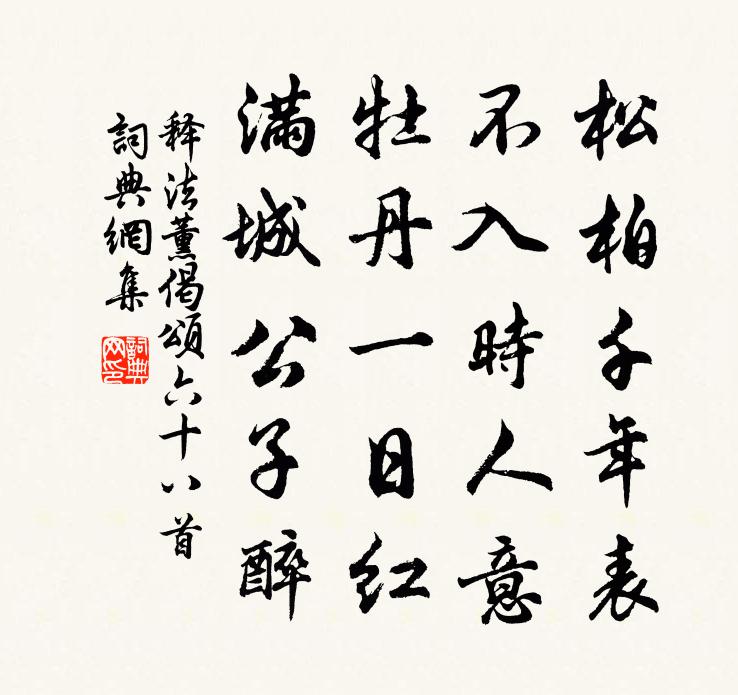 松柏千年表
不入時人意
牡丹一日紅
滿城公子醉
释法薰偈頌六十八首
詞典網集
詞典网印